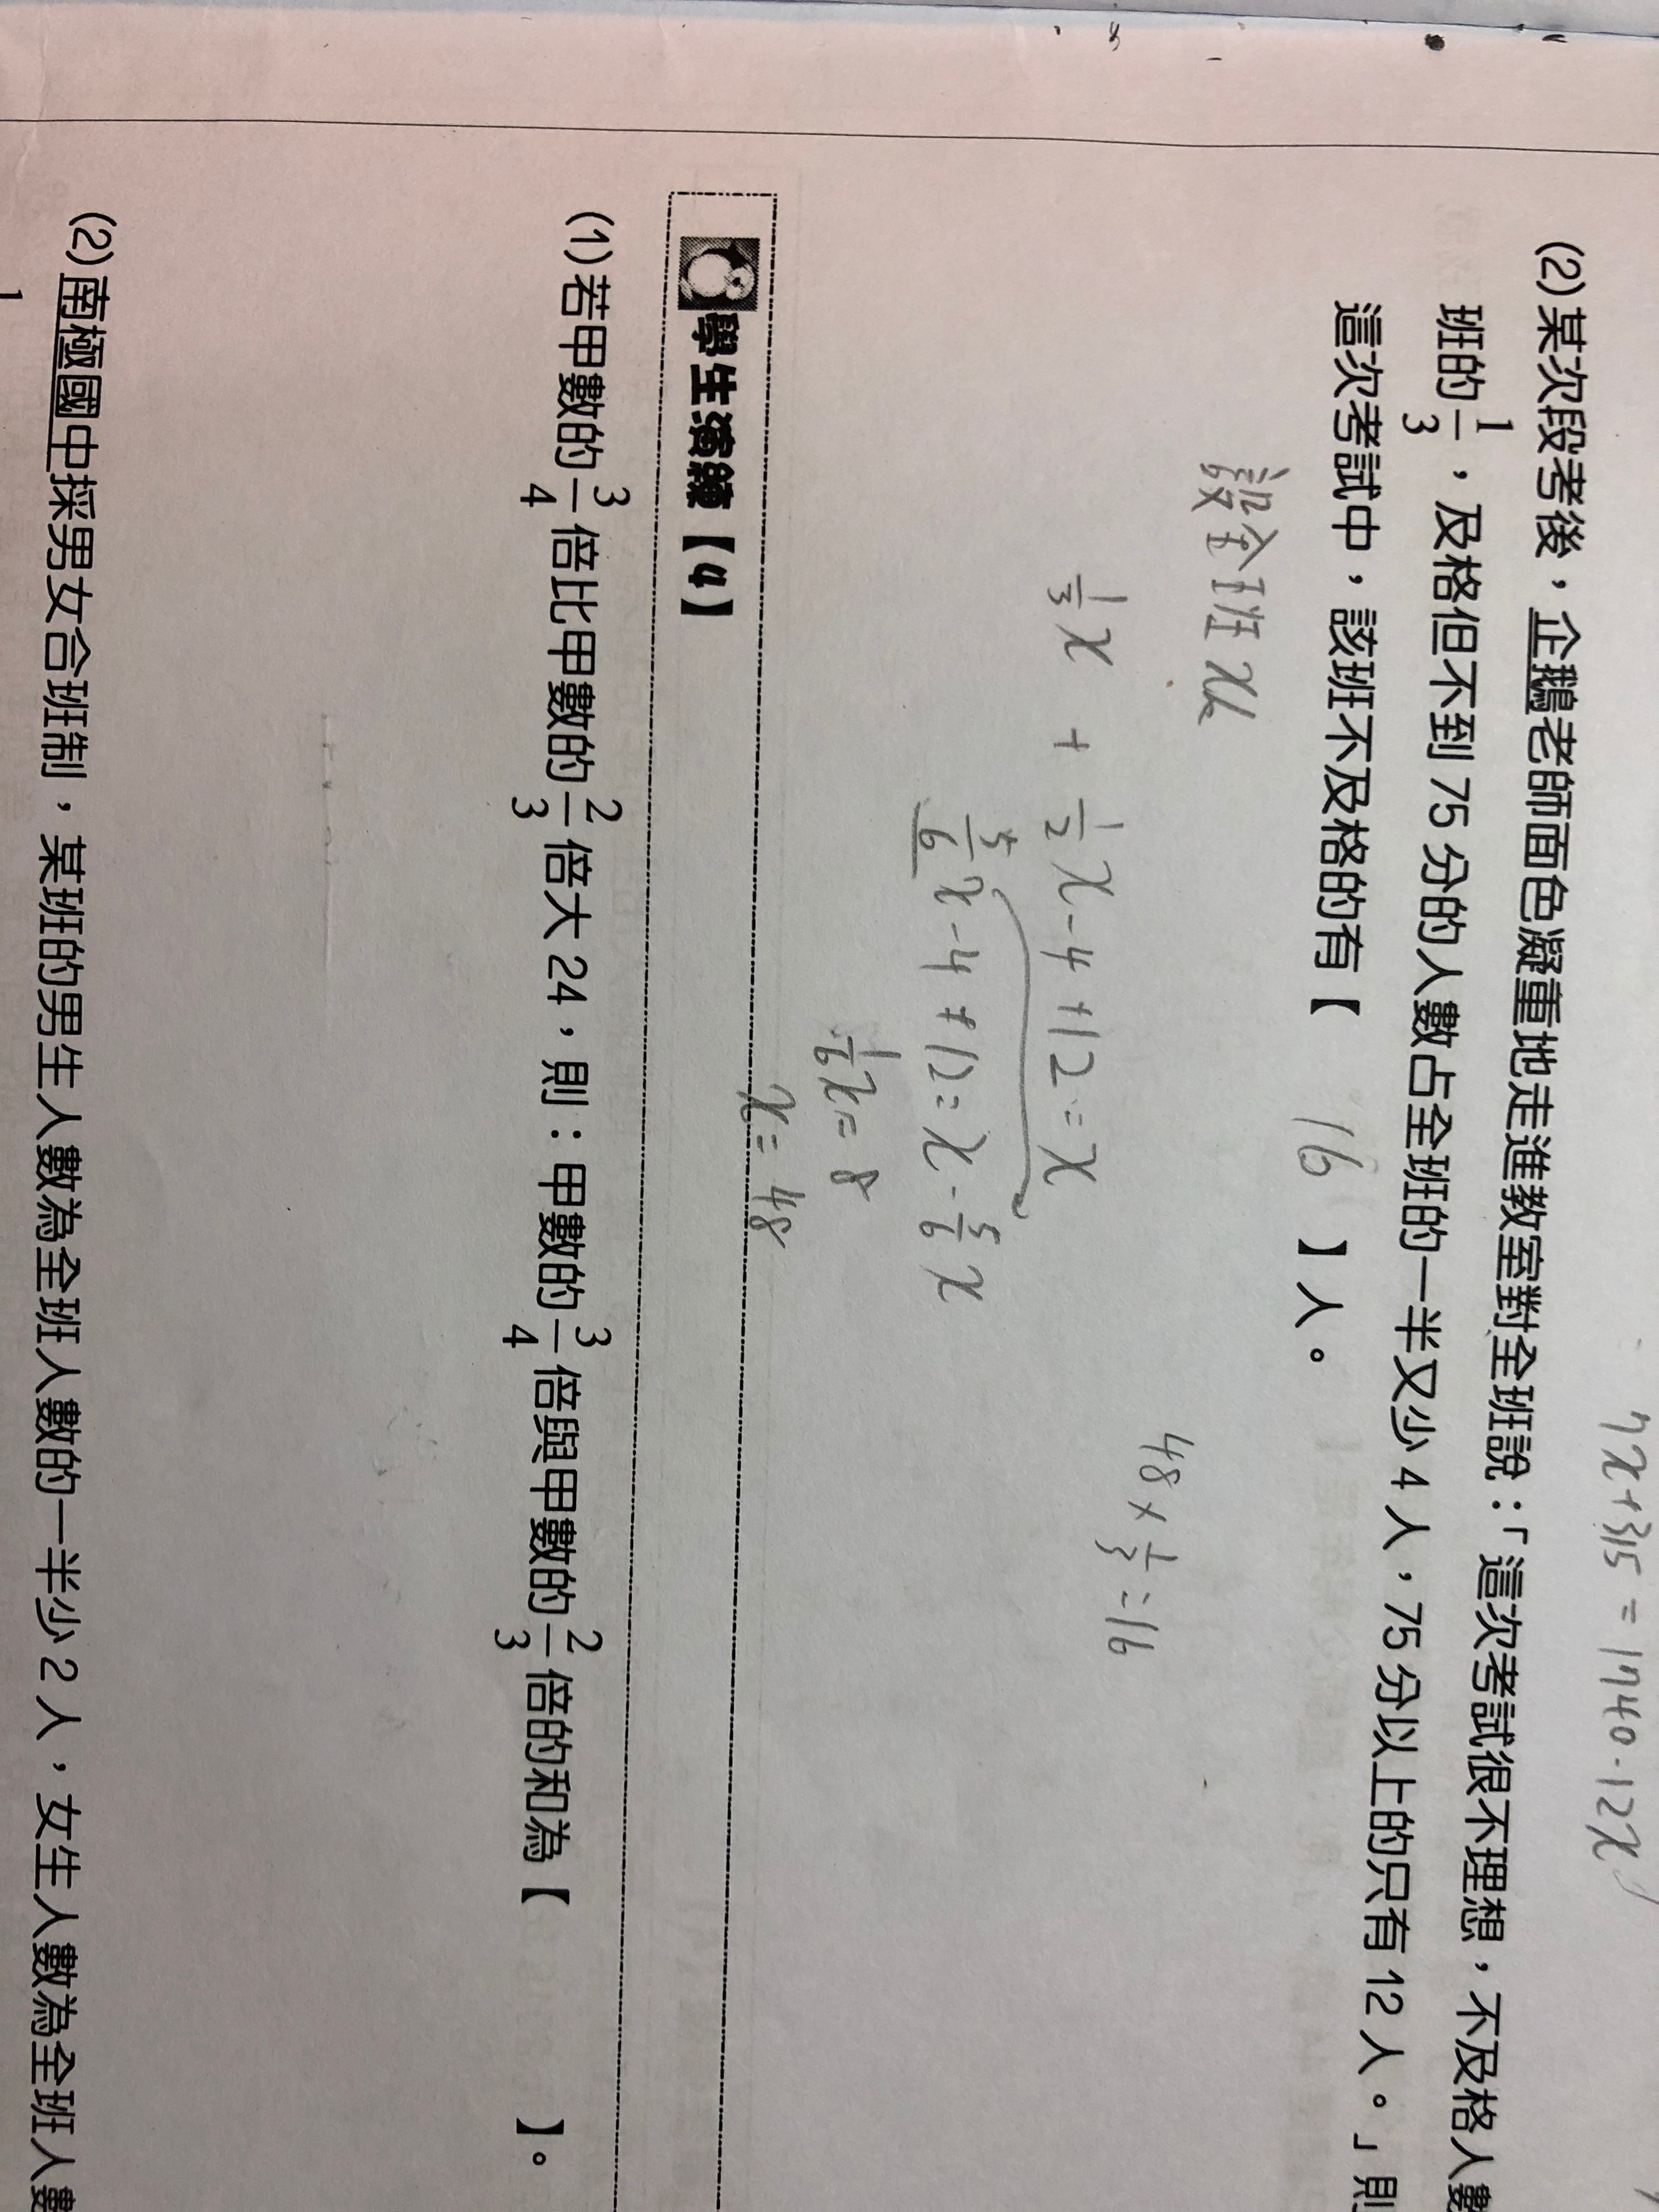 7x+315=1740-12x
(2)某次段考後，企鵝老師面色凝重地走進教室對全班說：「這次考試很不理想，不及格人數
班的1/3，及格但不到75分的人數占全班的一半又少4人，75分以上的只有12人。」則
這次考試中，該班不及格的有【 16 】人。
設全班x人
48×1/3=16
1/3x + 1/2x-4+12=x
5/6x-4+12=x-5/6x
1/6x=8
x=48
學生演練【4】
(1)若甲數的3/4倍比甲數的2/3倍大24，則：甲數的3/4倍與甲數的2/3倍的和為【 】。
(2)南極國中採男女合班制，某班的男生人數為全班人數的一半少2人，女生人數為全班人數
1